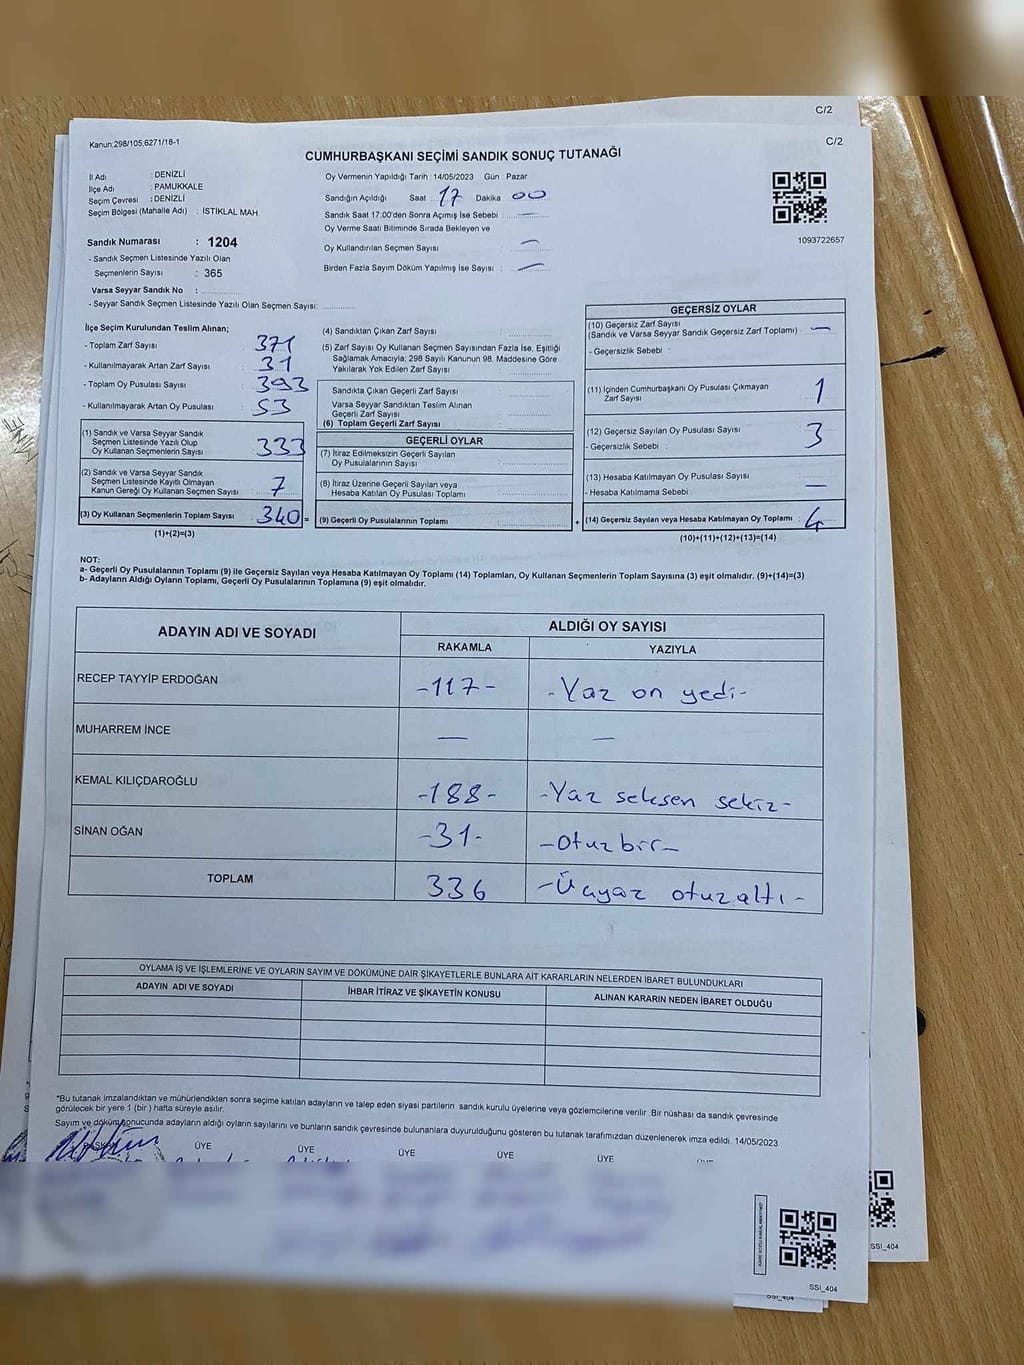 C/2
C/2
Kanun:298/105;6271/18-1
CUMHURBAŞKANI SEÇİMİ SANDIK SONUÇ TUTANAĞI
İl Adı : DENİZLİ
İlçe Adı : PAMUKKALE
Seçim Çevresi : DENİZLİ
Seçim Bölgesi (Mahalle Adı) : İSTİKLAL MAH.
Sandık Numarası : 1204
- Sandık Seçmen Listesinde Yazılı Olan
Seçmenlerin Sayısı : 365
Varsa Seyyar Sandık No :
- Seyyar Sandık Seçmen Listesinde Yazılı Olan Seçmen Sayısı:
Oy Vermenin Yapıldığı Tarih : 14/05/2023 Gün : Pazar
Sandığın Açıldığı Saat : 17 Dakika 00
Sandık Saat 17.00'den Sonra Açılmış İse Sebebi : —
Oy Verme Saati Bitiminde Sırada Bekleyen ve
Oy Kullandırılan Seçmen Sayısı : —
Birden Fazla Sayım Döküm Yapılmış İse Sayısı : —
1093722657
İlçe Seçim Kurulundan Teslim Alınan;
- Toplam Zarf Sayısı : 371
- Kullanılmayarak Artan Zarf Sayısı : 31
- Toplam Oy Pusulası Sayısı : 393
- Kullanılmayarak Artan Oy Pusulası : 53
(1) Sandık ve Varsa Seyyar Sandık
Seçmen Listesinde Yazılı Olup
Oy Kullanan Seçmenlerin Sayısı : 333
(2) Sandık ve Varsa Seyyar Sandık
Seçmen Listesinde Kayıtlı Olmayan
Kanun Gereği Oy Kullanan Seçmen Sayısı : 7
(3) Oy Kullanan Seçmenlerin Toplam Sayısı : 340 =
(1)+(2)=(3)
(4) Sandıktan Çıkan Zarf Sayısı :
(5) Zarf Sayısı Oy Kullanan Seçmen Sayısından Fazla İse, Eşitliği
Sağlamak Amacıyla; 298 Sayılı Kanunun 98. Maddesine Göre
Yakılarak Yok Edilen Zarf Sayısı :
Sandıkta Çıkan Geçerli Zarf Sayısı :
Varsa Seyyar Sandıktan Teslim Alınan
Geçerli Zarf Sayısı :
(6) Toplam Geçerli Zarf Sayısı :
GEÇERLİ OYLAR
(7) İtiraz Edilmeksizin Geçerli Sayılan
Oy Pusulalarının Sayısı :
(8) İtiraz Üzerine Geçerli Sayılan veya
Hesaba Katılan Oy Pusulası Toplamı :
(9) Geçerli Oy Pusulalarının Toplamı : +
GEÇERSİZ OYLAR
(10) Geçersiz Zarf Sayısı
(Sandık ve Varsa Seyyar Sandık Geçersiz Zarf Toplamı) : —
- Geçersizlik Sebebi :
(11) İçinden Cumhurbaşkanı Oy Pusulası Çıkmayan
Zarf Sayısı : 1
(12) Geçersiz Sayılan Oy Pusulası Sayısı : 3
- Geçersizlik Sebebi :
(13) Hesaba Katılmayan Oy Pusulası Sayısı : —
- Hesaba Katılmama Sebebi :
(14) Geçersiz Sayılan veya Hesaba Katılmayan Oy Toplamı : 4
(10)+(11)+(12)+(13)=(14)
NOT:
a- Geçerli Oy Pusulalarının Toplamı (9) ile Geçersiz Sayılan veya Hesaba Katılmayan Oy Toplamı (14) Toplamları, Oy Kullanan Seçmenlerin Toplam Sayısına (3) eşit olmalıdır. (9)+(14)=(3)
b- Adayların Aldığı Oyların Toplamı, Geçerli Oy Pusulalarının Toplamına (9) eşit olmalıdır.
ADAYIN ADI VE SOYADI ALDIĞI OY SAYISI
RAKAMLA YAZIYLA
RECEP TAYYİP ERDOĞAN -117- -Yaz on yedi-
MUHARREM İNCE — —
KEMAL KILIÇDAROĞLU -188- -Yaz seksen sekiz-
SİNAN OĞAN -31- -Otuzbir-
TOPLAM 336 -Üçyaz otuzaltı-
OYLAMA İŞ VE İŞLEMLERİNE VE OYLARIN SAYIM VE DÖKÜMÜNE DAİR ŞİKAYETLERLE BUNLARA AİT KARARLARIN NELERDEN İBARET BULUNDUKLARI
ADAYIN ADI VE SOYADI İHBAR İTİRAZ VE ŞİKAYETİN KONUSU ALINAN KARARIN NEDEN İBARET OLDUĞU
*Bu tutanak imzalandıktan ve mühürlendikten sonra seçime katılan adayların ve talep eden siyasi partilerin sandık kurulu üyelerine veya gözlemcilerine verilir. Bir nüshası da sandık çevresinde
görülecek bir yere 1 (bir) hafta süreyle asılır.
Sayım ve döküm sonucunda adayların aldığı oyların sayılarını ve bunların sandık çevresinde bulunanlara duyurulduğunu gösteren bu tutanak tarafımızdan düzenlenerek imza edildi. 14/05/2023
BAŞKAN ÜYE ÜYE ÜYE ÜYE ÜYE
SSI_404
SSI_404
SSI_404